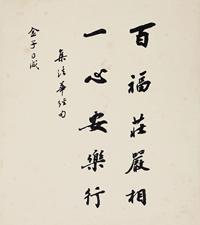 百福莊嚴相
一心安樂行
集法華經句
金子日威